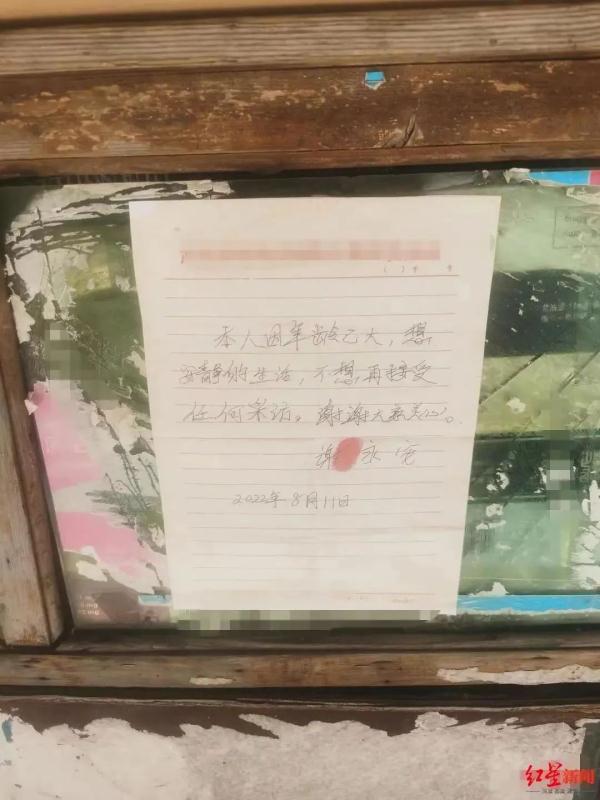 ( ) 字 号
本人因年龄已大，想
安静的生活，不想再接受
任何采访。谢谢大家关心。
谢永宽
2022年8月11日
红星新闻